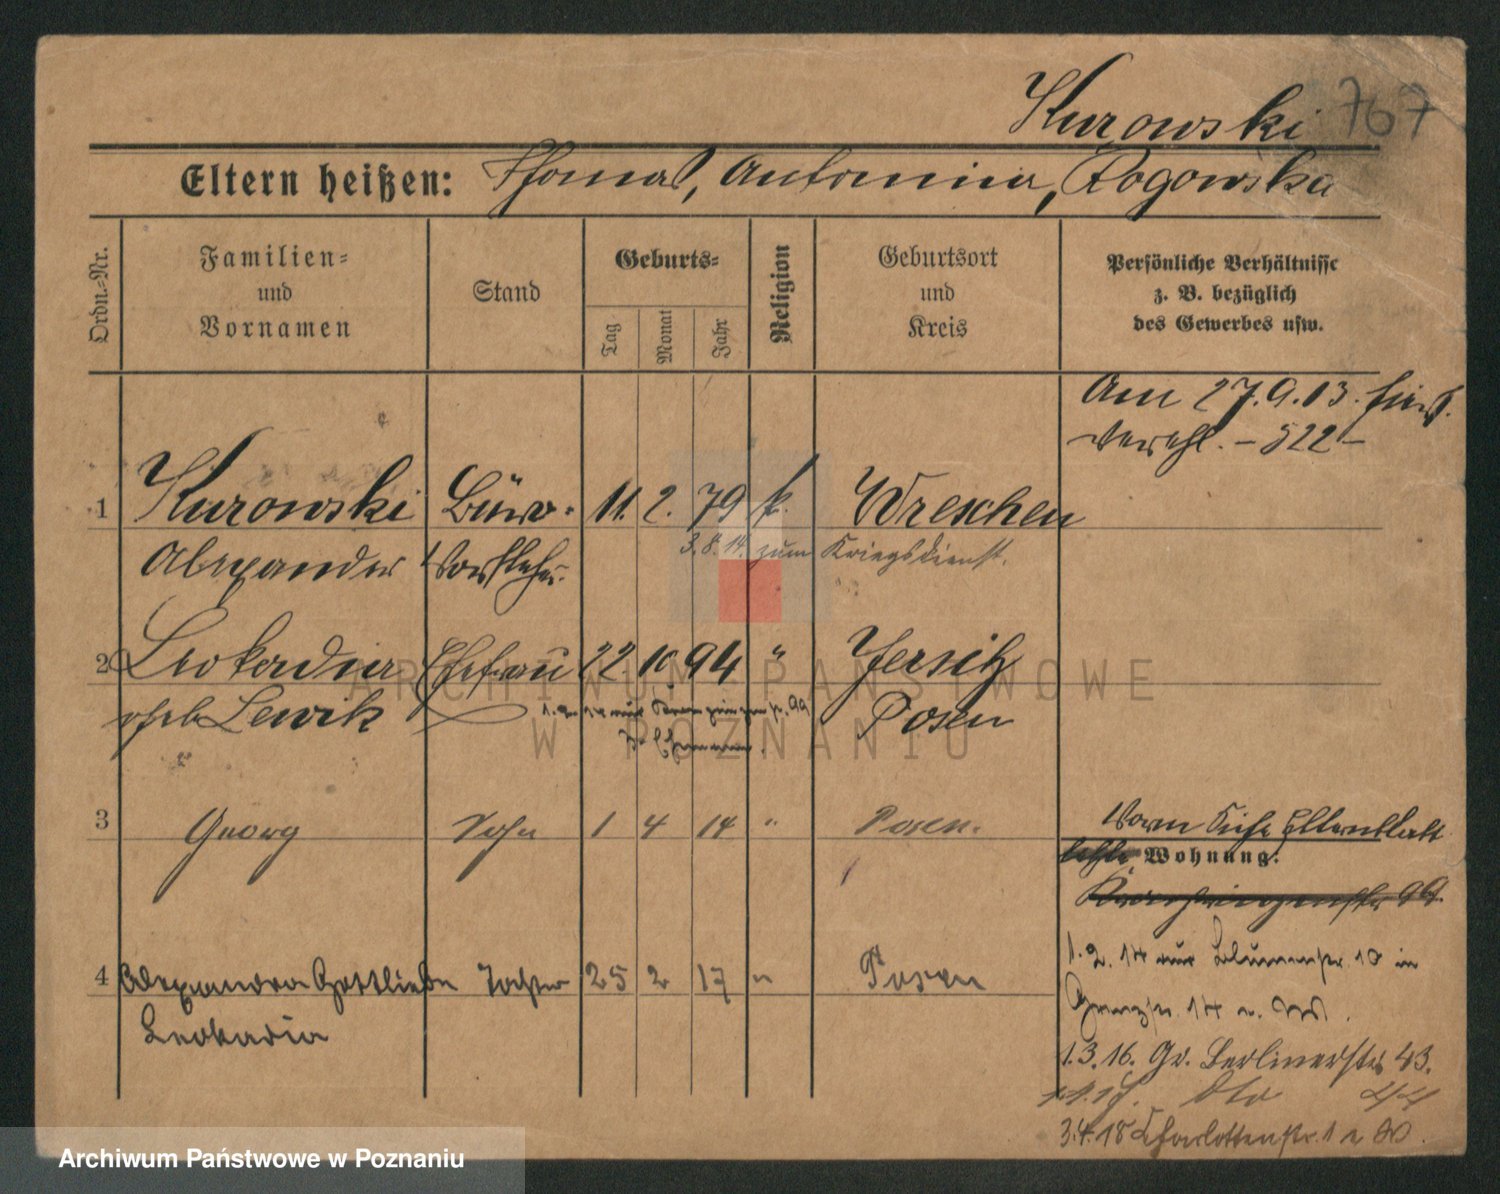 Kurowski 767
Eltern heißen: Thomas, Antonina, Rogowska
Ordn.-Nr.
Familien-
und
Vornamen
Stand
Geburts-
Tag
Monat
Jahr
Religion
Geburtsort
und
Kreis
Persönliche Verhältnisse
z. B. bezüglich
des Gewerbes usw.
Am 27.9.13. hier
verehl. – 522 –
1 Kurowski Büro- 11. 2. 79 k. Wreschen
Alexander Vorsteher. 3.8.14. zum Kriegsdienst.
2 Leokadia Ehefrau 22. 10 94 " Jersitz
geb Lewik Posen
3 Georg Sohn 1 4 14 " Posen.
Wohnung:
4 Alexandra Gottliebe Tochter 25 2 17 " Posen
Leokadia
1.2.14 aus Blumenstr. 10 in
14
1.3.16. Gr. Berlinerstr. 43.
dto 44
3.4.18 Charlottenstr. 1
ARCHIWUM PAŃSTWOWE
W POZNANIU
Archiwum Państwowe w Poznaniu